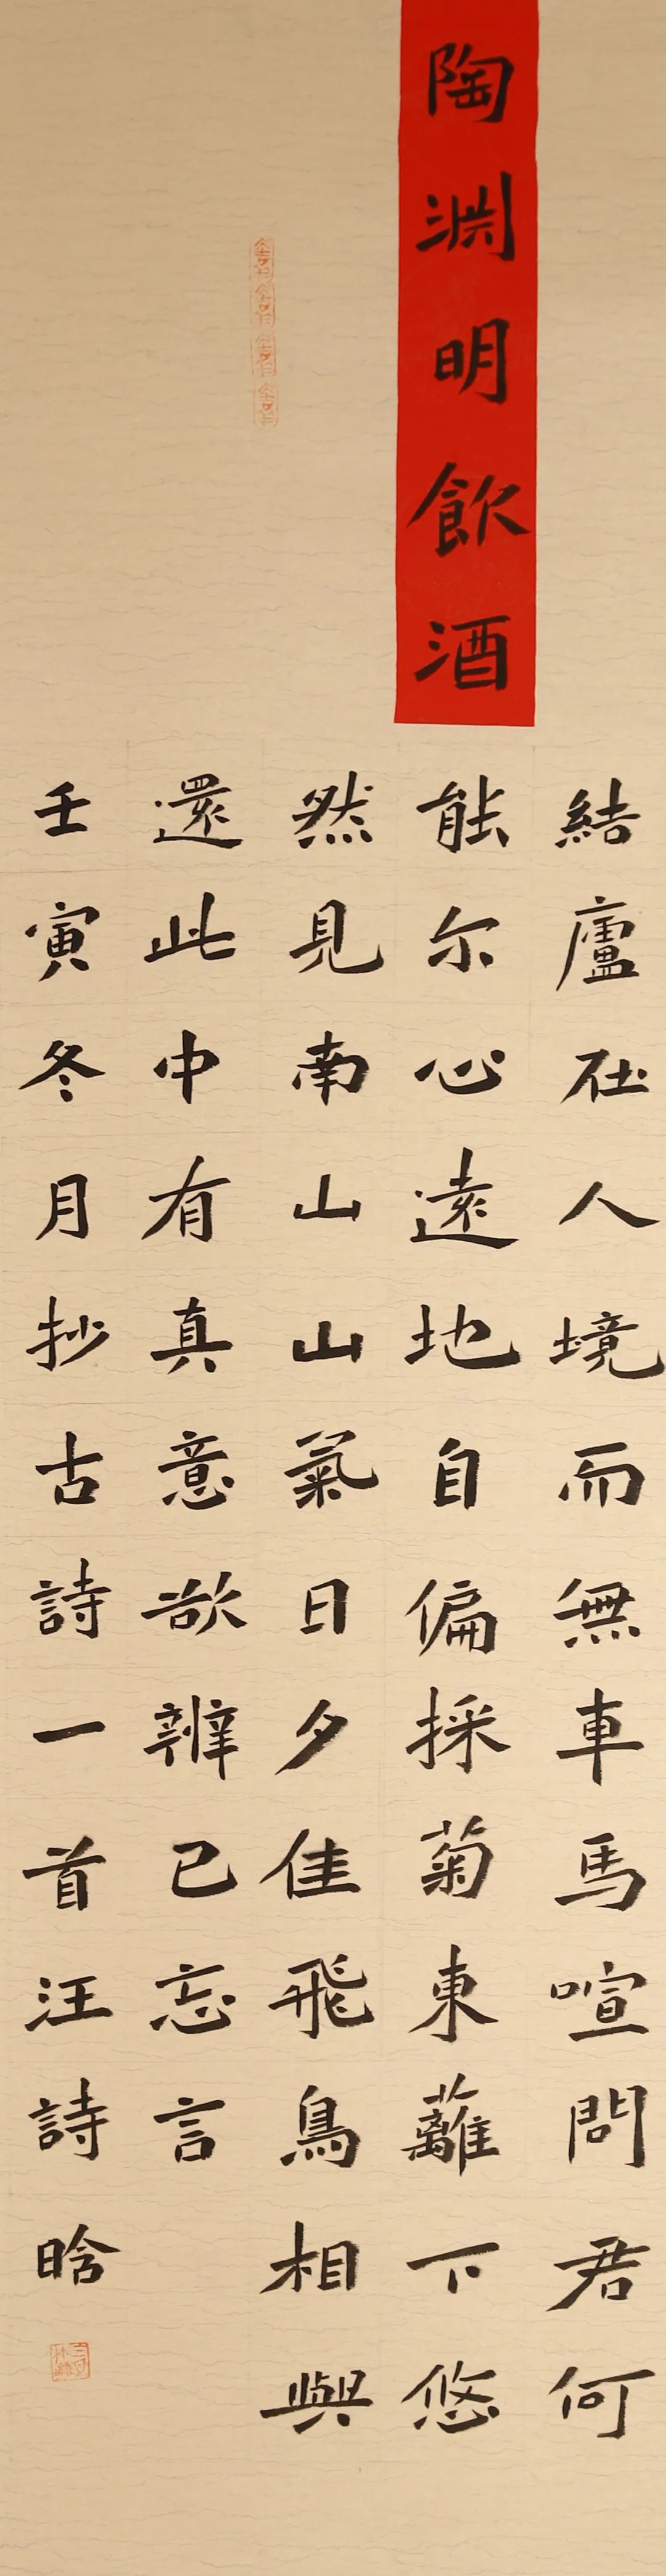 陶淵明飲酒
結廬在人境而無車馬喧問君何
能尔心遠地自偏採菊東蘺下悠
然見南山山氣日夕佳飛鳥相與
還此中有真意欲辨已忘言
壬寅冬月抄古詩一首汪詩晗